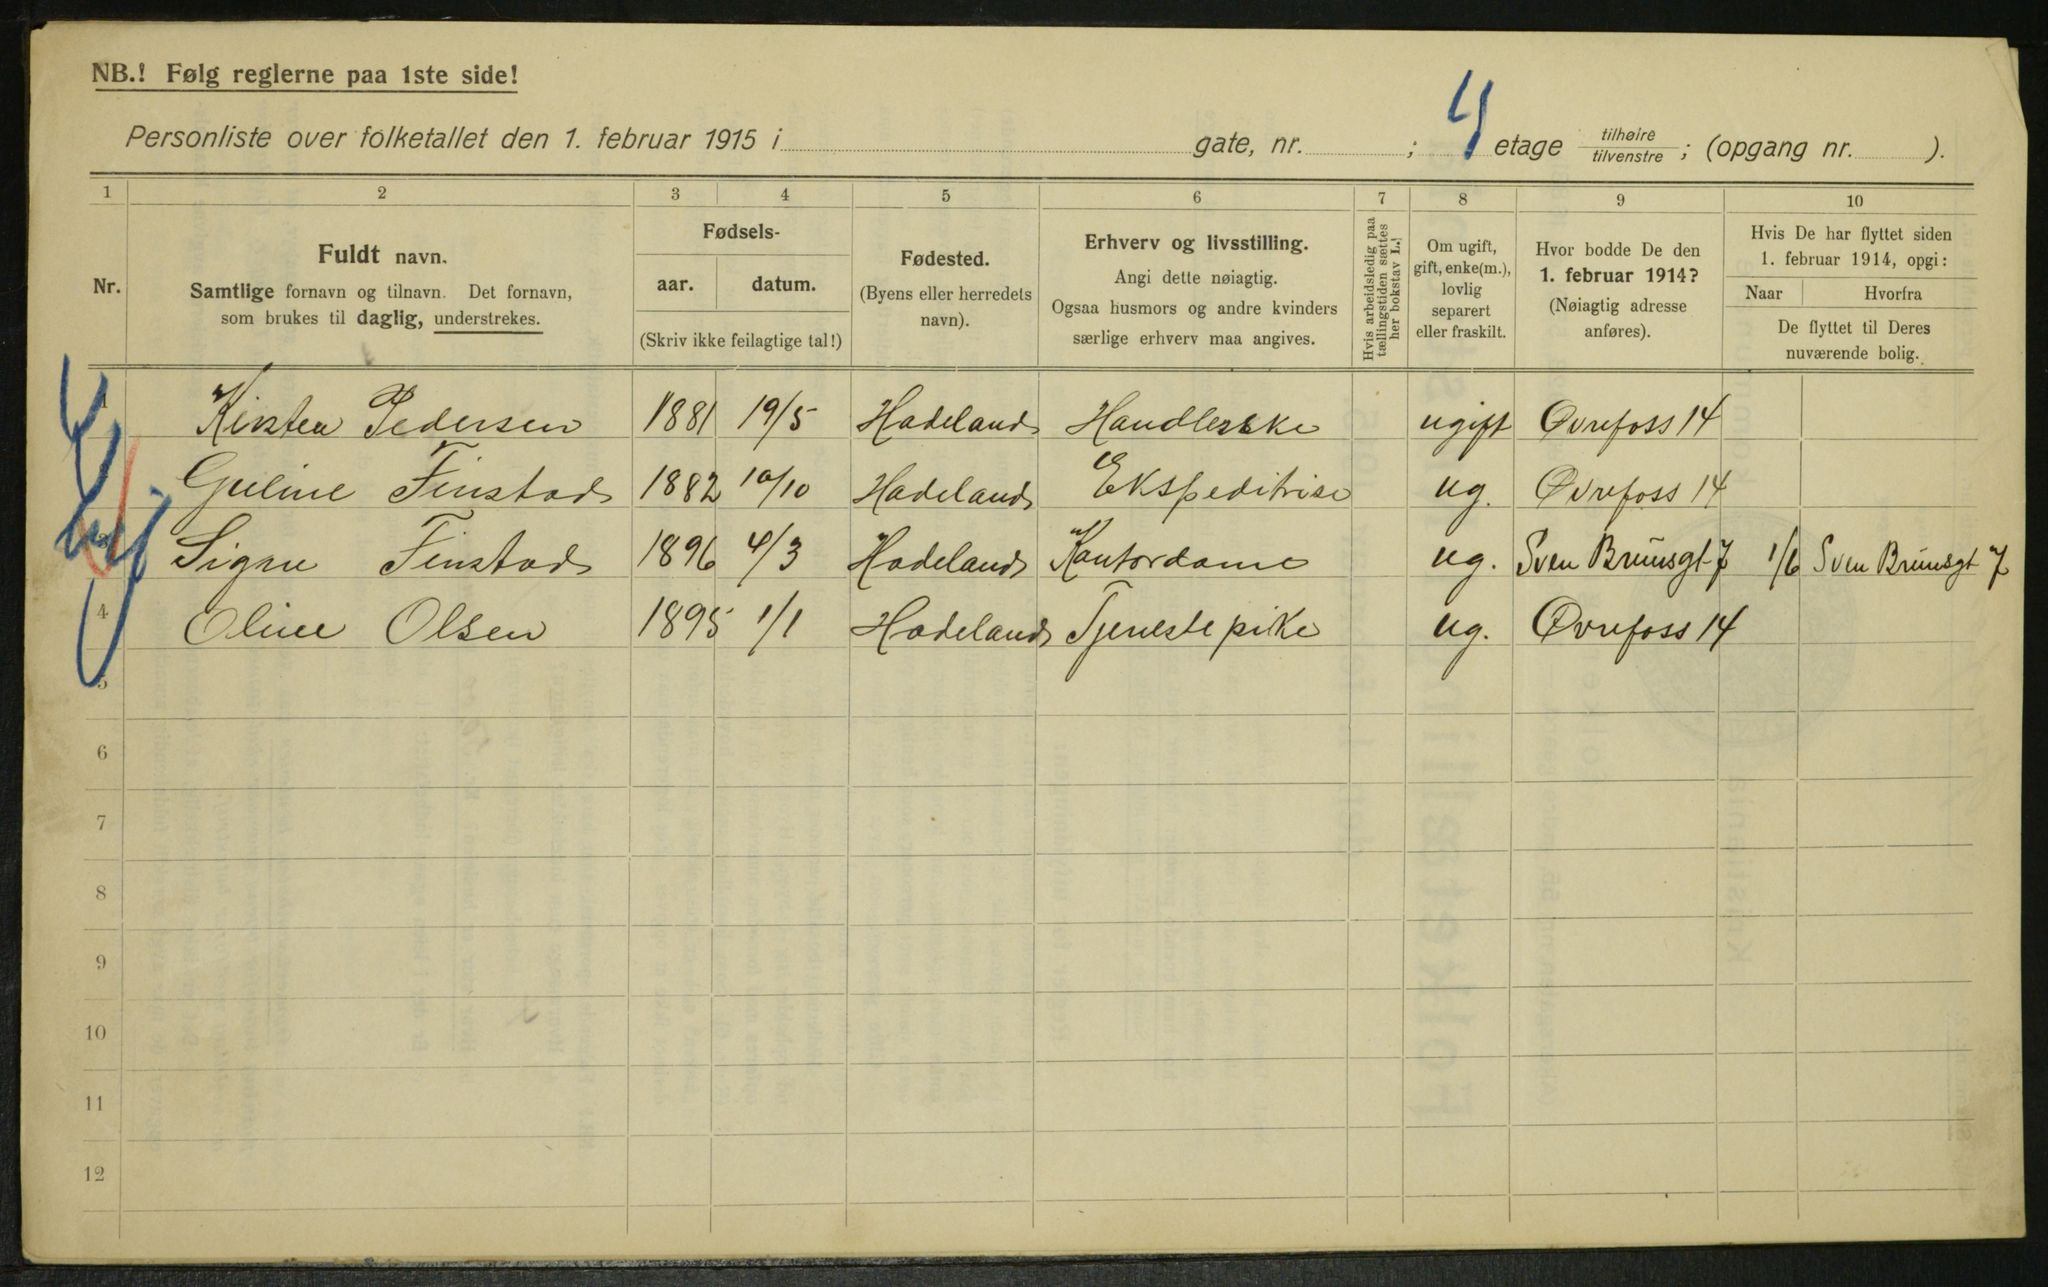 NB.! Følg reglerne paa 1ste side!
Personliste over folketallet den 1. februar 1915 i gate, nr. ; 4 etage tilhøire tilvenstre ; (opgang nr. ).
1 2 3 4 5 6 7 8 9 10
Nr.
Fuldt navn.
Samtlige fornavn og tilnavn. Det fornavn,
som brukes til daglig, understrekes.
Fødsels-
aar. datum.
(Skriv ikke feilagtige tal!)
Fødested.
(Byens eller herredets
navn).
Erhverv og livsstilling.
Angi dette nøiagtig.
Ogsaa husmors og andre kvinders
særlige erhverv maa angives.
Hvis arbeidsledig paa
tællingstiden sættes
her bokstav L.!
Om ugift,
gift, enke(m.),
lovlig
separert
eller fraskilt.
Hvor bodde De den
1. februar 1914?
(Nøiagtig adresse
anføres).
Hvis De har flyttet siden
1. februar 1914, opgi:
Naar Hvorfra
De flyttet til Deres
nuværende bolig.
Kirsten Pedersen 1881 19/5 Hadeland Handlerske ugift Øvrefoss 14
Guline Finstad 1882 10/10 Hadeland Ekspeditrise ug. Øvrefoss 14
Signe Finstad 1896 4/3 Hadeland Kontordame ug. Sven Brunsgt 7 1/6 Sven Brunsgt 7
4 Oline Olsen 1895 1/1 Hadeland Tjenestepike ug. Øvrefoss 14
5
6
7
8
9
10
11
12